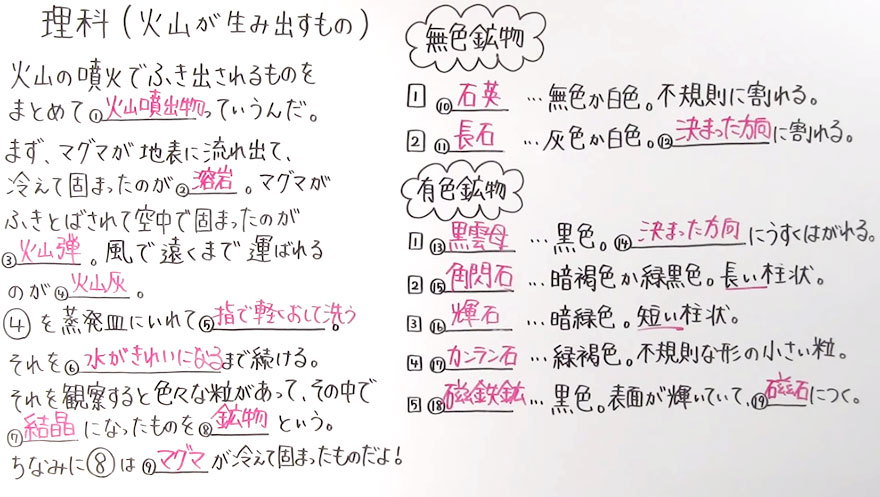 理科(火山が生み出すもの)
火山の噴火でふき出されるものを
まとめて①火山噴出物っていうんだ。
まず、マグマが地表に流れ出て、
冷えて固まったのが②溶岩。マグマが
ふきとばされて空中で固まったのが
③火山弾。風で遠くまで運ばれる
のが④火山灰。
④を蒸発皿にいれて⑤指で軽くおして洗う。
それを⑥水がきれいになるまで続ける。
それを観察すると色々な粒があって、その中で
⑦結晶になったものを⑧鉱物という。
ちなみに⑧は⑨マグマが冷えて固まったものだよ!
無色鉱物
1 ⑩石英…無色か白色。不規則に割れる。
2 ⑪長石…灰色か白色。⑫決まった方向に割れる。
有色鉱物
1 ⑬黒雲母…黒色。⑭決まった方向にうすくはがれる。
2 ⑮角閃石…暗褐色か緑黒色。長い柱状。
3 ⑯輝石…暗緑色。短い柱状。
4 ⑰カンラン石…緑褐色。不規則な形の小さい粒。
5 ⑱磁鉄鉱…黒色。表面が輝いていて、⑲磁石につく。